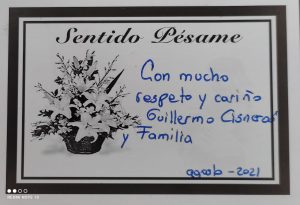 Sentido Pésame
Con mucho
respeto y cariño
Guillermo Cisneros
y Familia
agosto - 2021